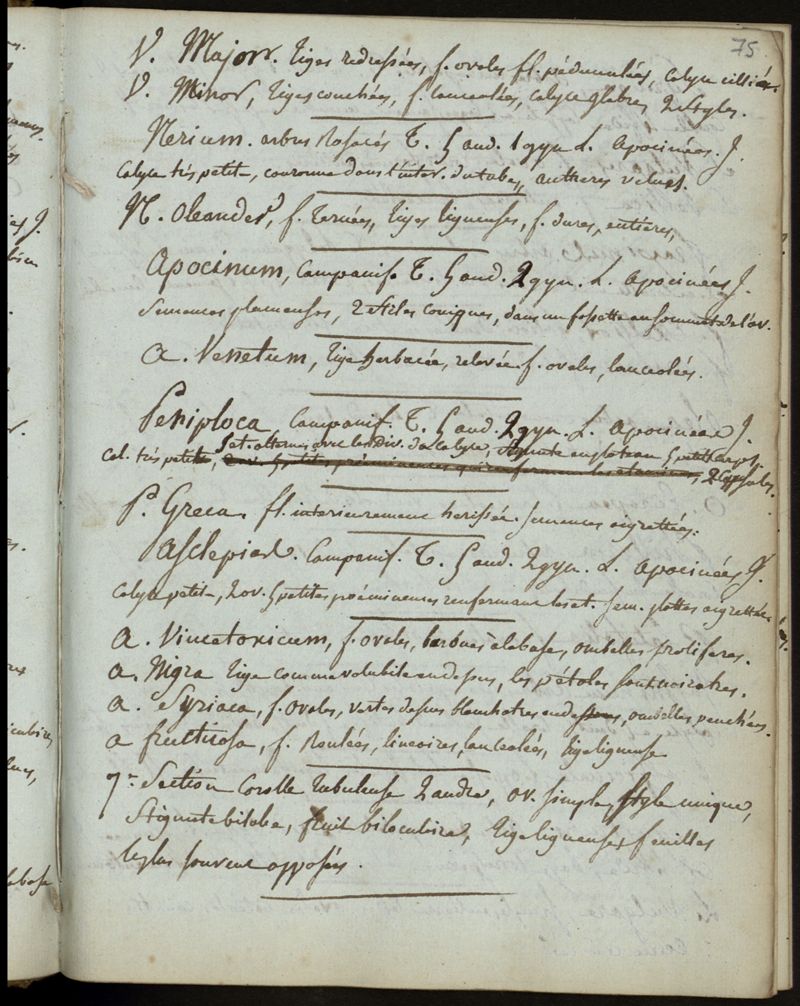 75.
V. Major. Tiges redressées, f. ovales fl. pédunculées, calyce cilliés.
V. Minor, Tiges couchées, f. lanceolées, calyce glabre, 2 styles.
Nerium. arbus Rosacés T. 5 and. 1 gyn L. Apocinées. J.
Calyce très petit, couronne dans l'inter. du tube, antheres velues.
N. Oleander, f. Ternées, Tiges ligneuses, f. dures, entières,
Apocinum, Campanif. T. 5 and. 2 gyn. L. Apocinées J.
Semences plumeuses, 2 stiles coniques, dans un fossette au sommet de l'ov.
A. Venetum, Tige herbacée, relevée f. ovales, lanceolées.
Periploca, Campanif. T. 5 and. 2 gyn. L. Apocinées J.
5 et. alternes avec les div. du calyce, stigmate en plateau 5 petits
Cal. très petit, 2 ov. 5 petites proéminences qui renferment les etamines, 2 capsules.
P. Greca. fl. interieurement herissée. semences aigrettées.
Asclepiad. Campanif. T. 5 and. 2 gyn. L. Apocinées J.
Calyce petit, 2 ov. 5 petites proéminences renfermant les et. sem. plattes aigrettées.
A. Vincetoxicum, f. ovales, barbues à la base, ombelles proliferes.
A. Nigra Tige comme volubile au dessus, les pétales sont noiratres.
A. Syriaca, f. ovales, vertes dessus blanchatres en dessous, ombelles penchées.
A fruticosa, f. Roulées, lineaires, lanceolées, tige ligneuse
7e. Section Corolle Tubuleuse 2 andre, ov. simple, style unique,
Stigmate bilobe, fruit biloculaire, Tige ligneuse, feuilles
le plus souvent opposées.